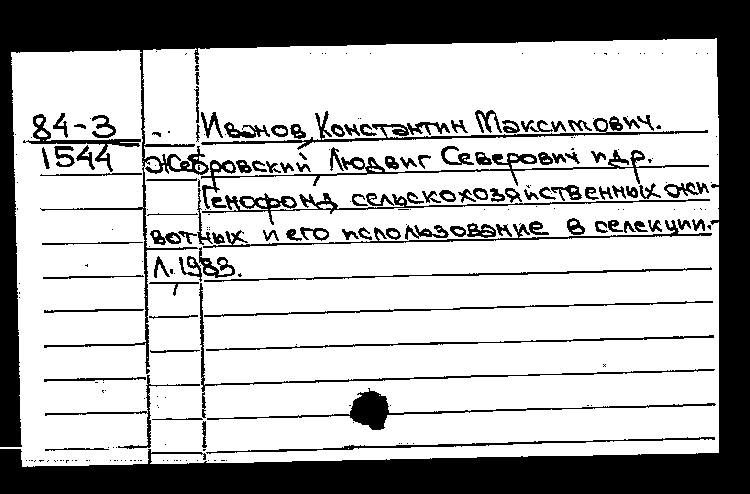 84-3 Иванов, Константин Максимович.
1544 Жебровский, Людвиг Северович и др.
Генофонд сельскохозяйственных жи-
вотных и его использование в селекции.-
Л., 1983.